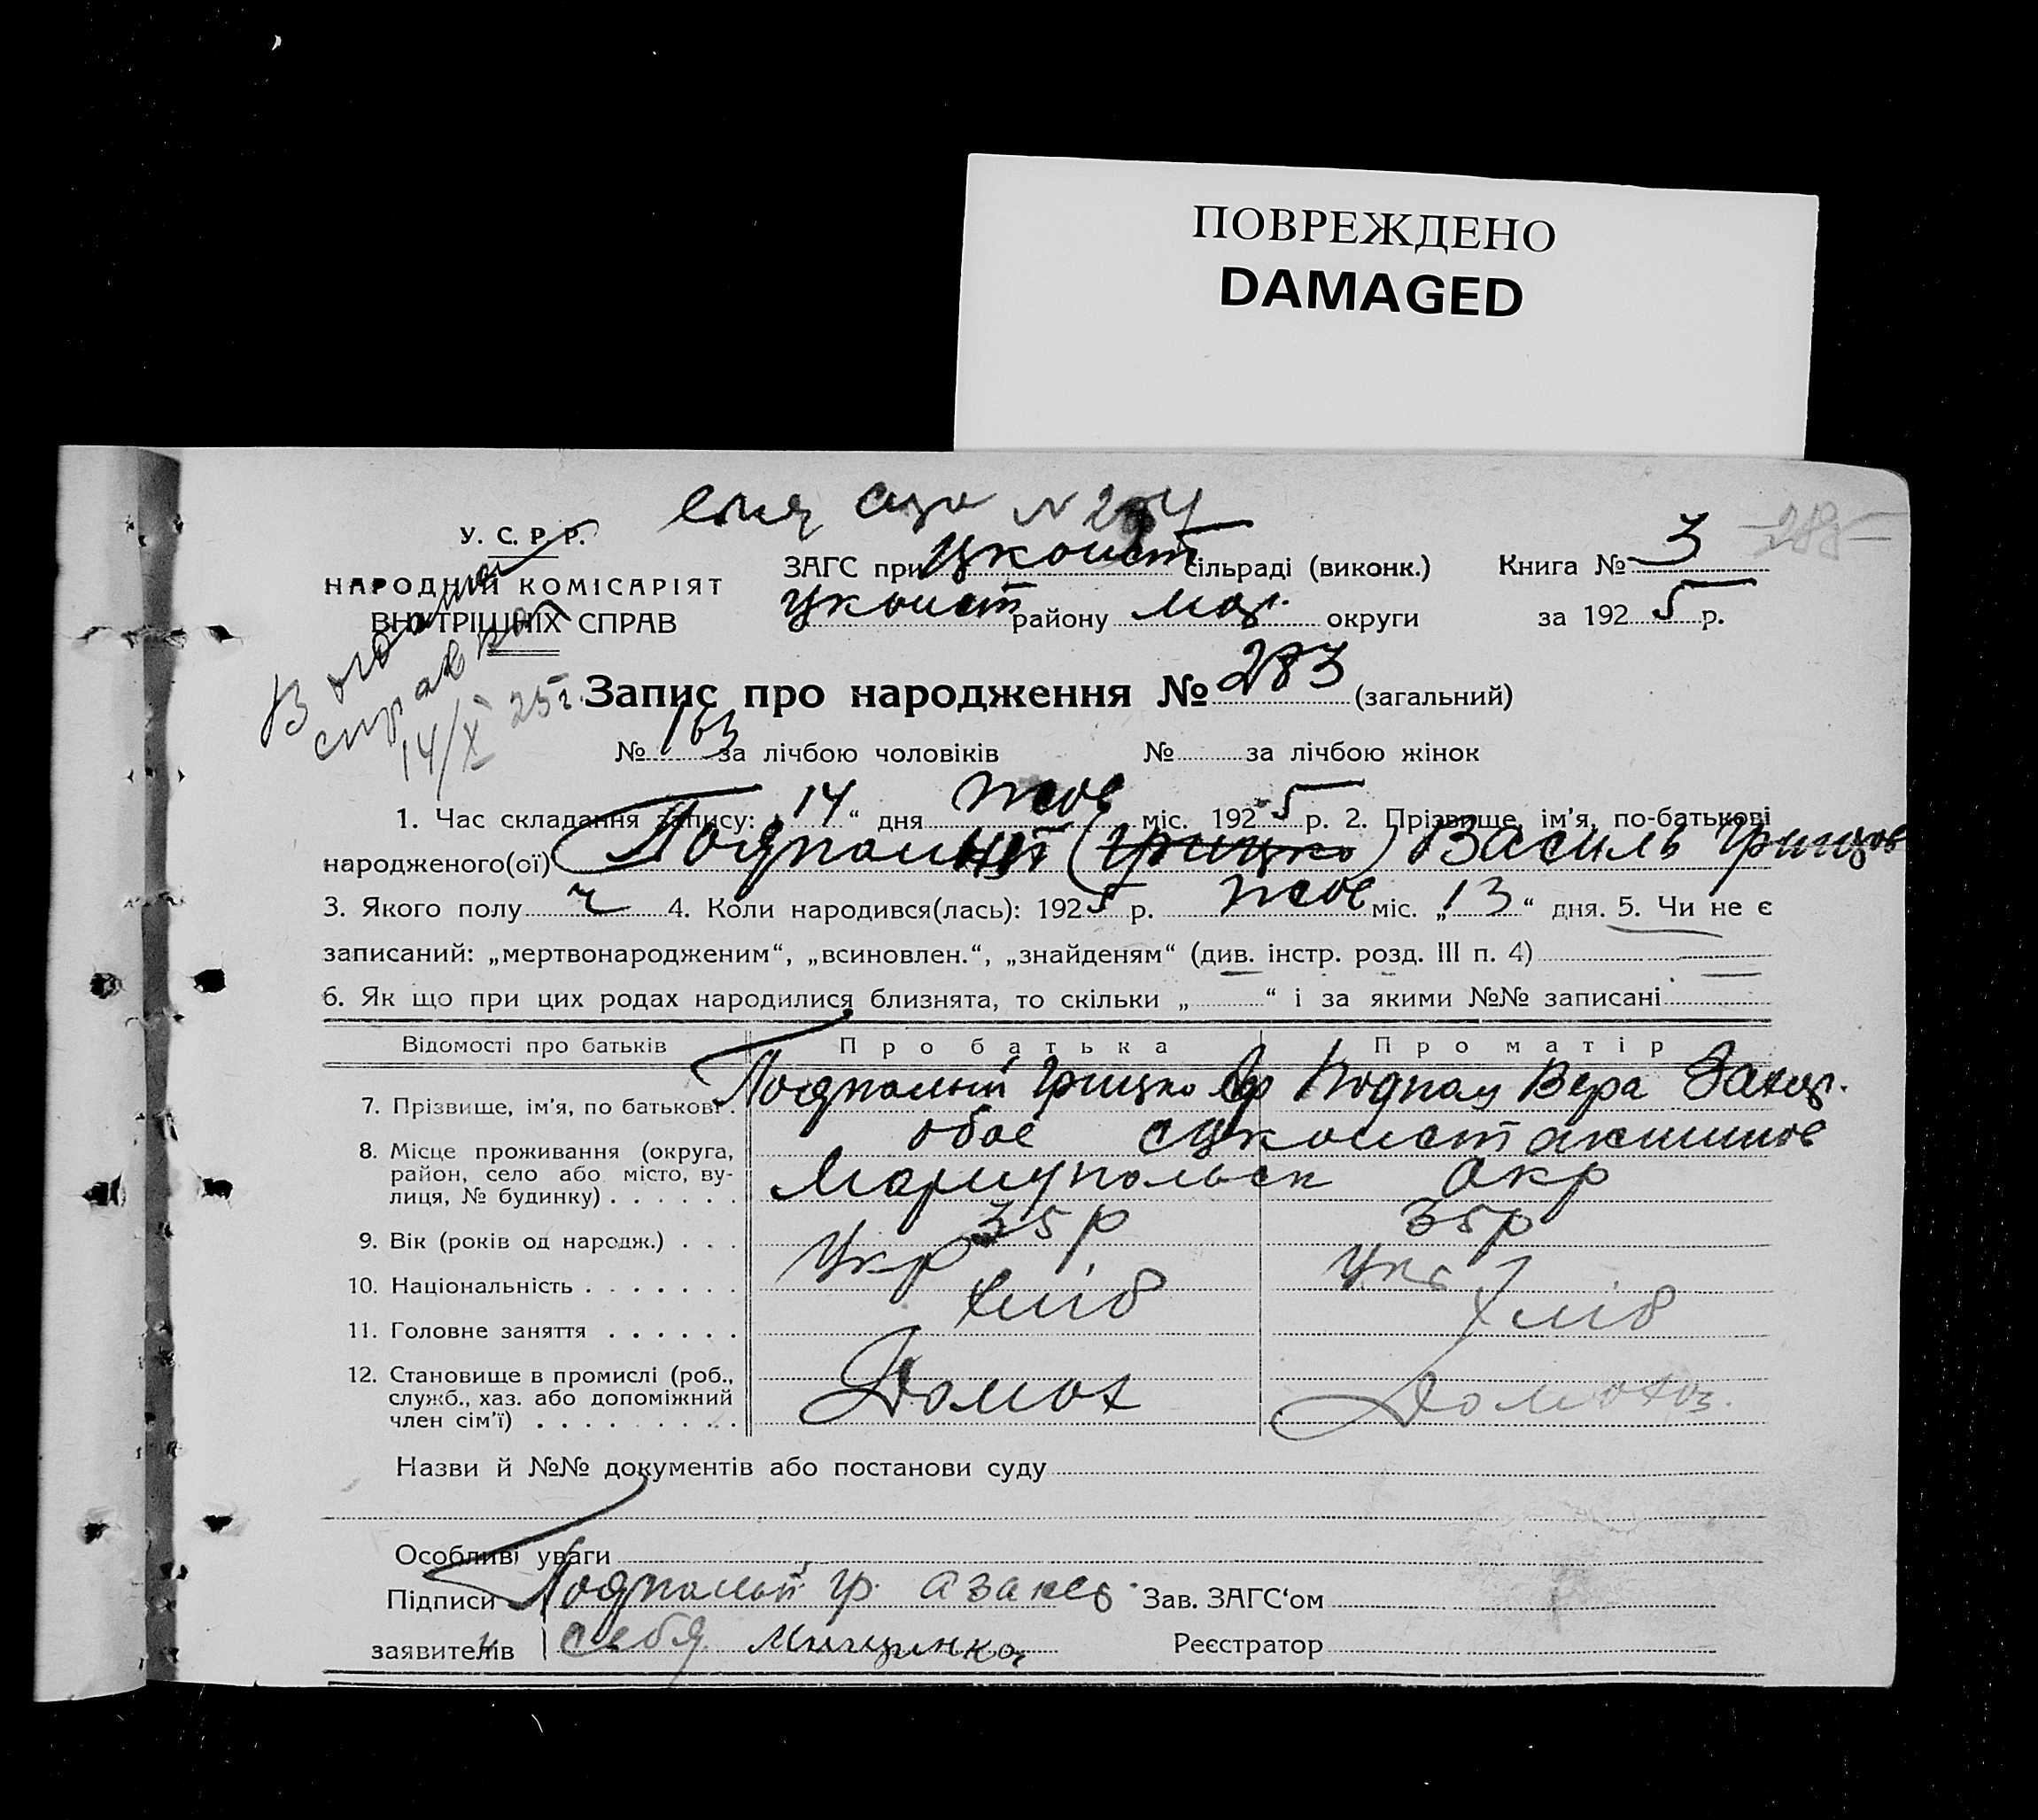 ПОВРЕЖДЕНО
DAMAGED
N 284
У. С. Р. Р.
НАРОДНИЙ КОМІСАРІЯТ
ВНУТРІШНІХ СПРАВ
ЗАГС при сільраді (виконк.)
району округи
Книга № 3
за 1925 р.
14/X 25 г.
Запис про народження № 283 (загальний)
№ 163 за лічбою чоловіків № за лічбою жінок
1. Час складання запису: „14“ дня жов міс. 1925 р. 2. Прізвище, ім’я, по-батькові
народженого(ої) Подпалный (Грицко) Василь Грицов
3. Якого полу ч 4. Коли народився(лась): 1925 р. жов міс. „13“ дня. 5. Чи не є
записаний: „мертвонародженим“, „всиновлен.“, „знайденям“ (див. інстр. розд. III п. 4)
6. Як що при цих родах народилися близнята, то скільки „ “ і за якими №№ записані
Відомості про батьків Про батька Про матір
7. Прізвище, ім’я, по батькові . Подпалный Грицко Подпал Вера Захар.
8. Місце проживання (округа, район, село або місто, вулиця, № будинку) . . . . . . обоє
Мариупольск окр
9. Вік (років од народж.) . . . 35 р 35 р
10. Національність . . . . . . . Укр Укр
11. Головне заняття . . . . . . хліб хліб
12. Становище в промислі (роб., служб., хаз. або допоміжний член сім’ї) . . . . . . . . . Домох Домохоз.
Назви й №№ документів або постанови суду
Особливі уваги
Підписи Подпалный гр. а за нево Зав. ЗАГС‘ом
заявителів себя Мищинка Реєстратор